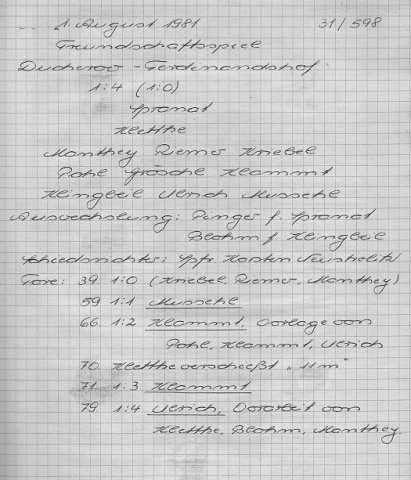 1. August 1981 31/598
Freundschaftsspiel
Ducherow - Ferdinandshof
1:4 (1:0)
Spranat
Klettke
Manthey Riemer Kriebel
Pohl Grosche Klammt
Klingbeil Ulrich Mussehl
Auswechslung: Penger f. Spranat
Blohm f. Klingbeil
Schiedsrichter: Spfr. Karsten
Tore: 39 1:0 (Kriebel, Riemer, Manthey)
59 1:1 Mussehl
66. 1:2 Klammt, Vorlage von
Pohl, Klammt, Ulrich
70. Klettke verschießt „11m"
71 1:3 Klammt
79 1:4 Ulrich, Vorarbeit von
Klettke, Blohm, Manthey.